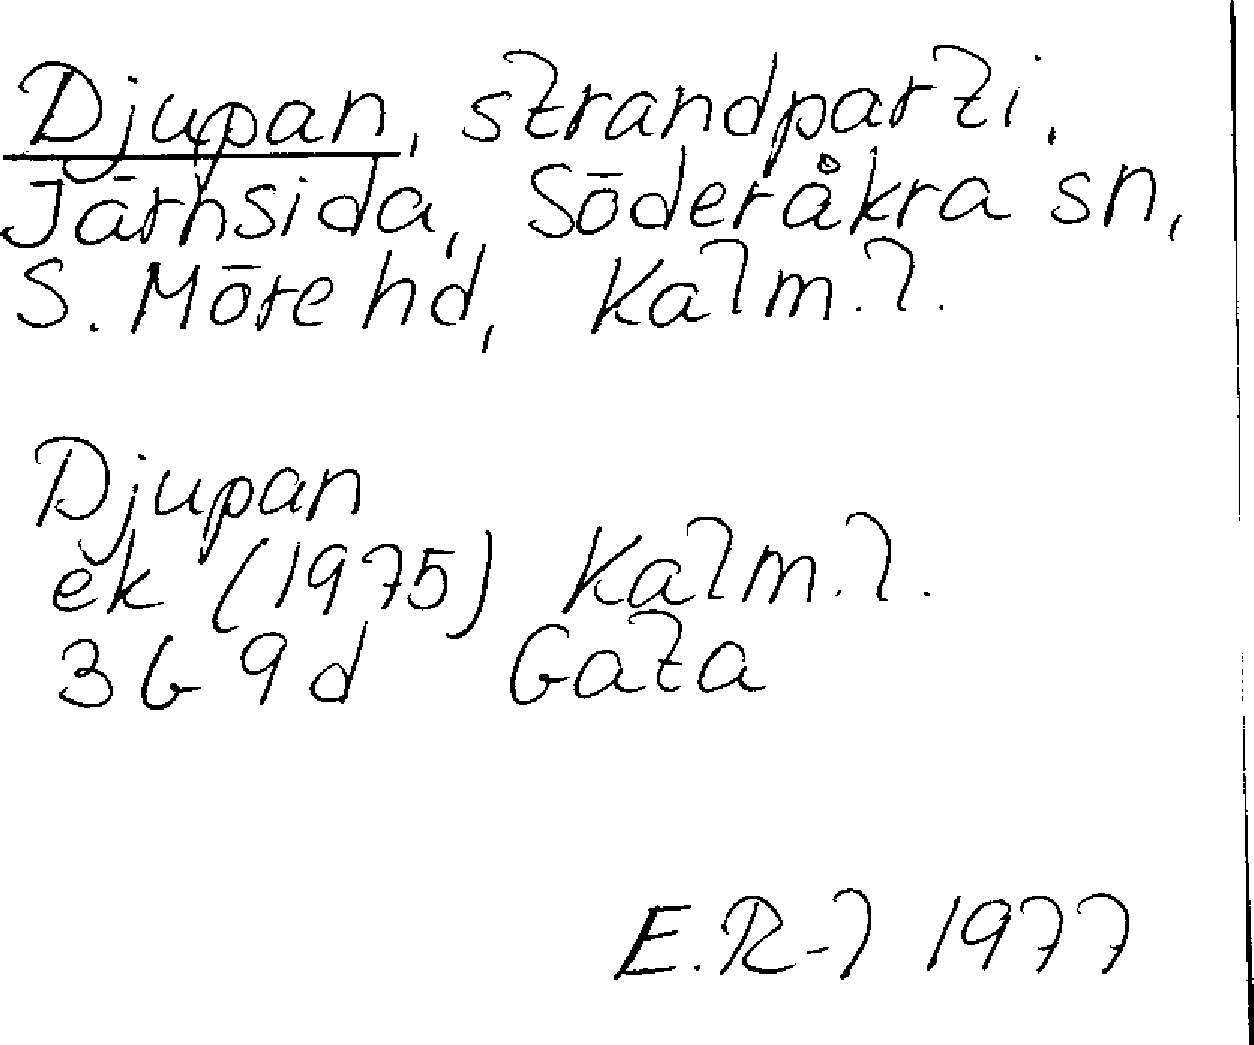 Djupan, strandparti,
Järnsida, Söderåkra sn,
S. Möre hd, Kalm.l.
Djupan
ek (1975) Kalm.l.
3G 9d Gata
E.R-l 1977